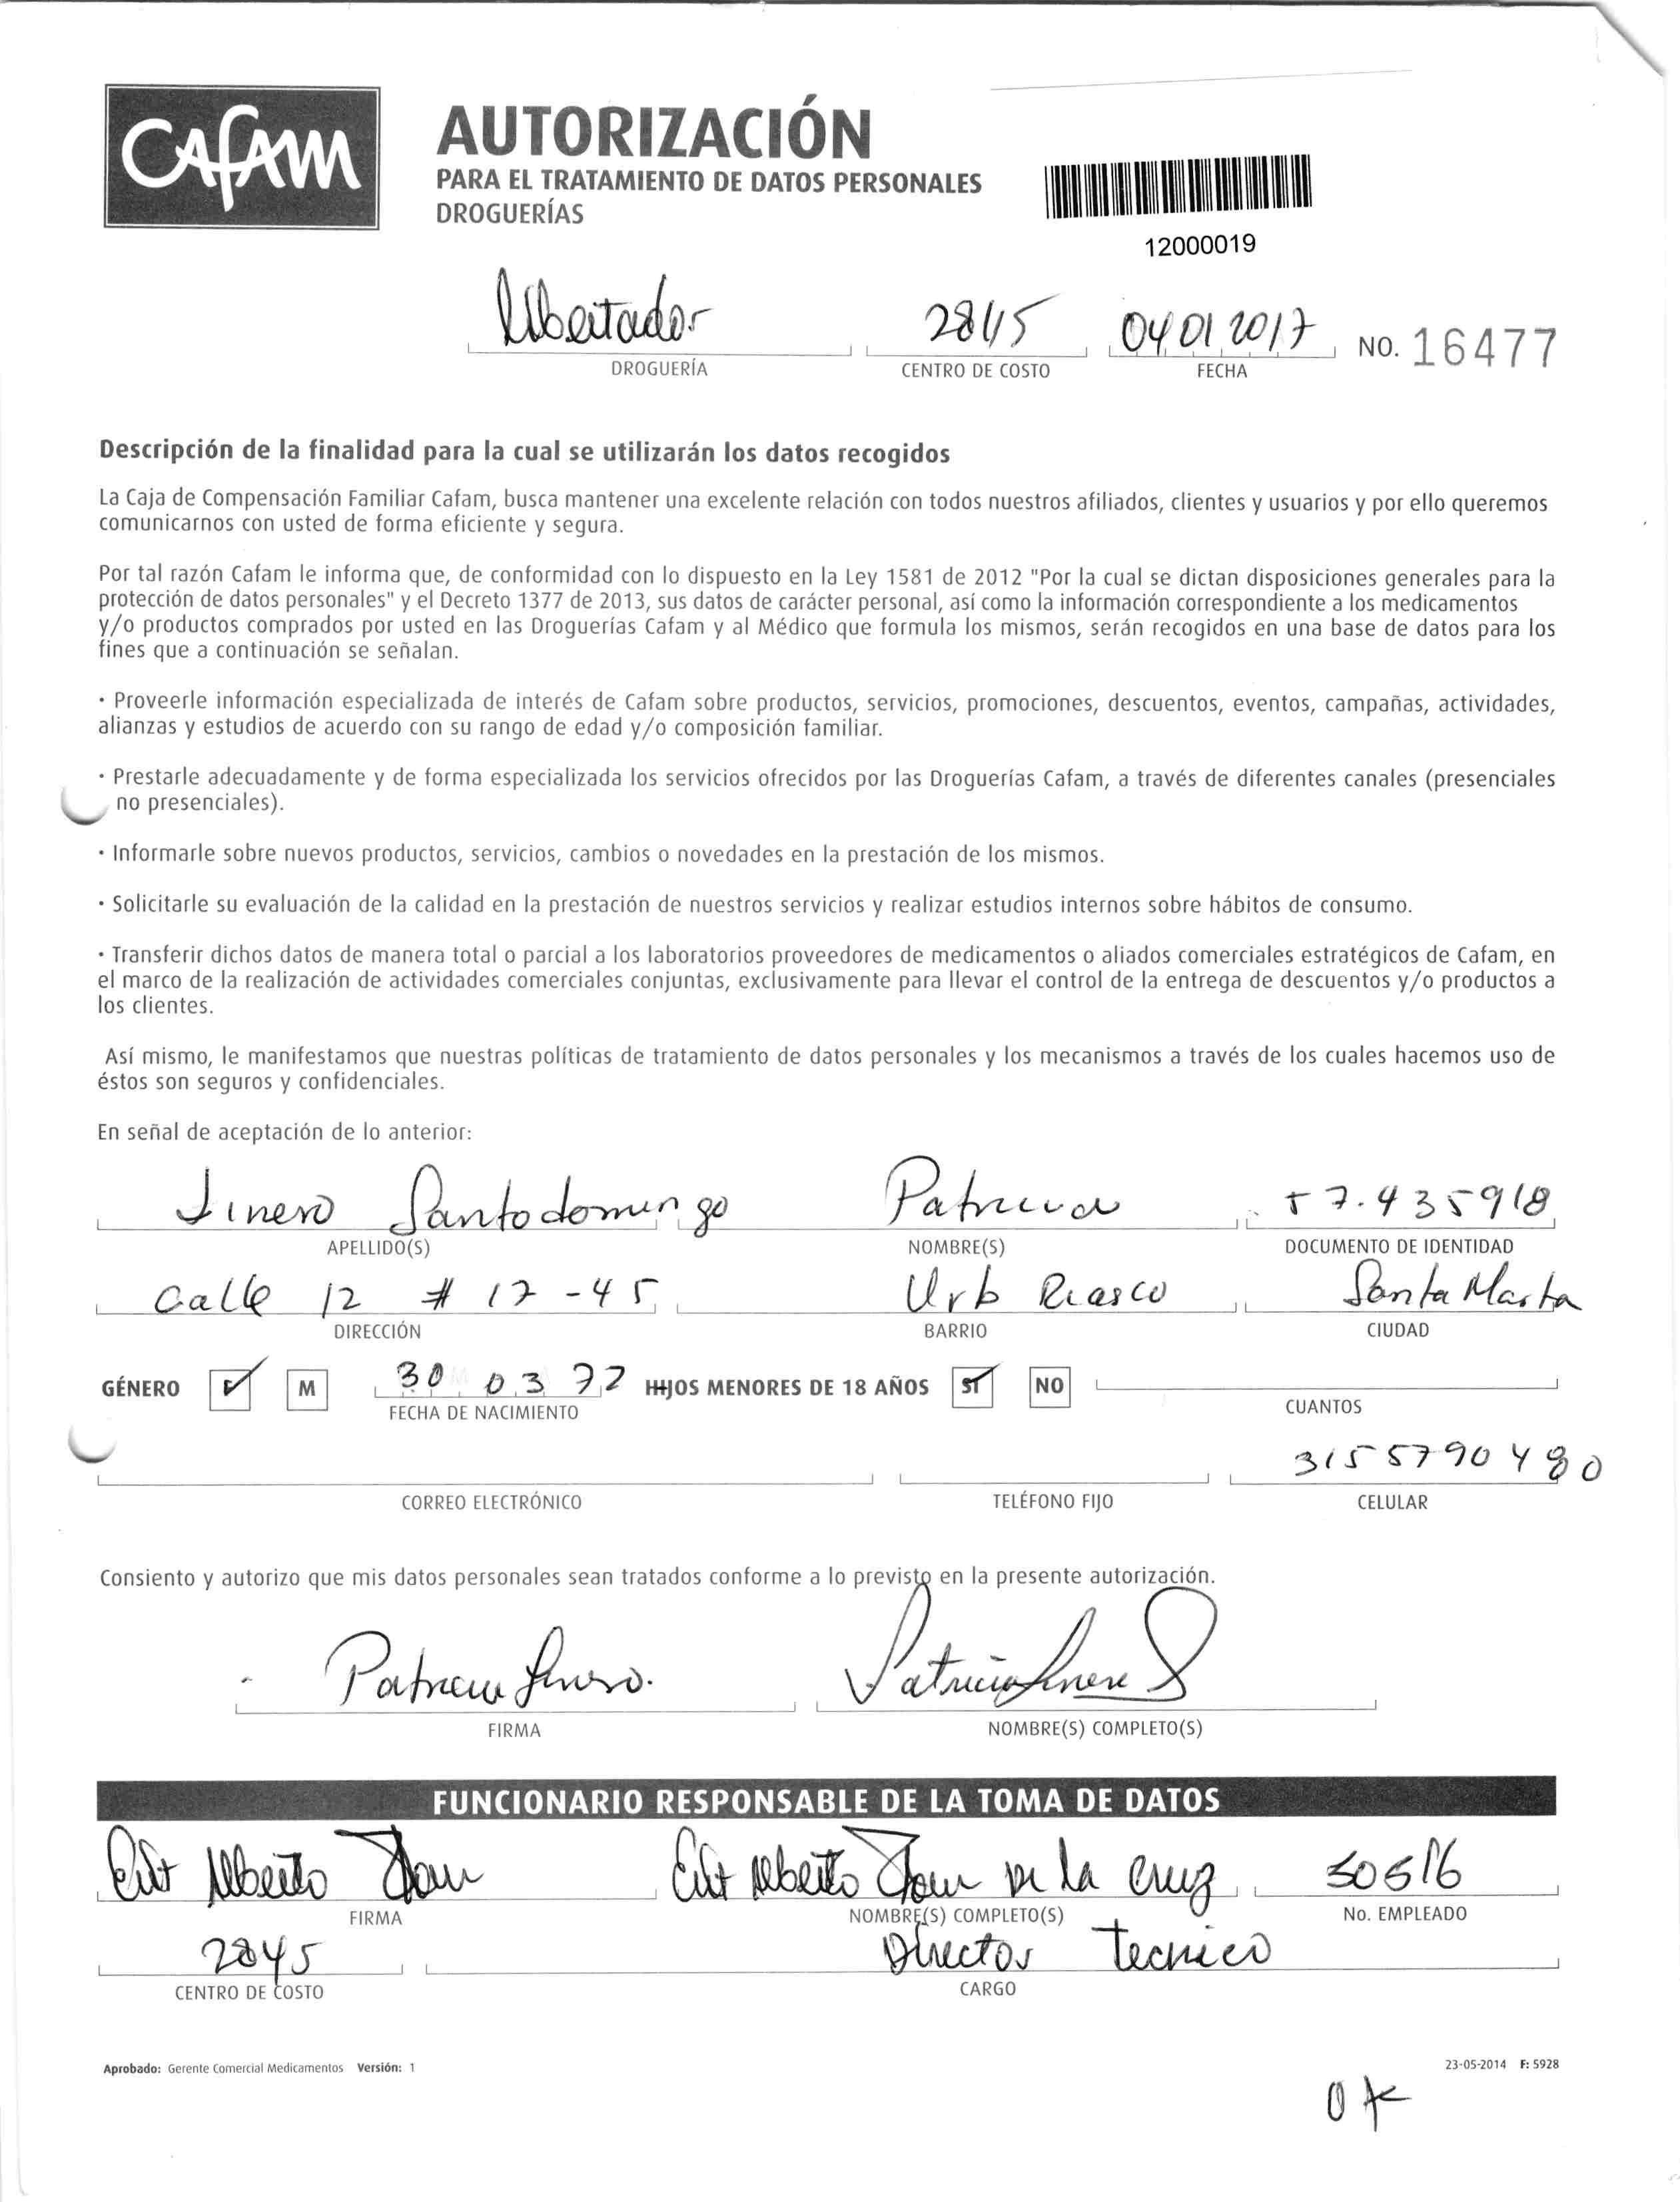 CAFAM
AUTORIZACIÓN
PARA EL TRATAMIENTO DE DATOS PERSONALES
DROGUERÍAS
12000019
Libertador 2845 04 01 2017 NO. 16477
DROGUERÍA CENTRO DE COSTO FECHA
Descripción de la finalidad para la cual se utilizarán los datos recogidos
La Caja de Compensación Familiar Cafam, busca mantener una excelente relación con todos nuestros afiliados, clientes y usuarios y por ello queremos
comunicarnos con usted de forma eficiente y segura.
Por tal razón Cafam le informa que, de conformidad con lo dispuesto en la Ley 1581 de 2012 "Por la cual se dictan disposiciones generales para la
protección de datos personales" y el Decreto 1377 de 2013, sus datos de carácter personal, así como la información correspondiente a los medicamentos
y/o productos comprados por usted en las Droguerías Cafam y al Médico que formula los mismos, serán recogidos en una base de datos para los
fines que a continuación se señalan.
· Proveerle información especializada de interés de Cafam sobre productos, servicios, promociones, descuentos, eventos, campañas, actividades,
alianzas y estudios de acuerdo con su rango de edad y/o composición familiar.
· Prestarle adecuadamente y de forma especializada los servicios ofrecidos por las Droguerías Cafam, a través de diferentes canales (presenciales
no presenciales).
· Informarle sobre nuevos productos, servicios, cambios o novedades en la prestación de los mismos.
· Solicitarle su evaluación de la calidad en la prestación de nuestros servicios y realizar estudios internos sobre hábitos de consumo.
· Transferir dichos datos de manera total o parcial a los laboratorios proveedores de medicamentos o aliados comerciales estratégicos de Cafam, en
el marco de la realización de actividades comerciales conjuntas, exclusivamente para llevar el control de la entrega de descuentos y/o productos a
los clientes.
Así mismo, le manifestamos que nuestras políticas de tratamiento de datos personales y los mecanismos a través de los cuales hacemos uso de
éstos son seguros y confidenciales.
En señal de aceptación de lo anterior:
Linero Santodomingo Patricia 57.435918
APELLIDO(S) NOMBRE(S) DOCUMENTO DE IDENTIDAD
Calle 12 # 17-45 Urb Riasco Santa Marta
DIRECCIÓN BARRIO CIUDAD
GÉNERO F M 30 03 72 HIJOS MENORES DE 18 AÑOS SI NO
FECHA DE NACIMIENTO CUANTOS
3155790480
CORREO ELECTRÓNICO TELÉFONO FIJO CELULAR
Consiento y autorizo que mis datos personales sean tratados conforme a lo previsto en la presente autorización.
Patricia Linero. Patricia Linero S
FIRMA NOMBRE(S) COMPLETO(S)
FUNCIONARIO RESPONSABLE DE LA TOMA DE DATOS
Alberto Alberto de la Cruz 50516
FIRMA NOMBRE(S) COMPLETO(S) No. EMPLEADO
2845 Director Tecnico
CENTRO DE COSTO CARGO
Aprobado: Gerente Comercial Medicamentos Versión: 1 23-05-2014 F: 5928
OK